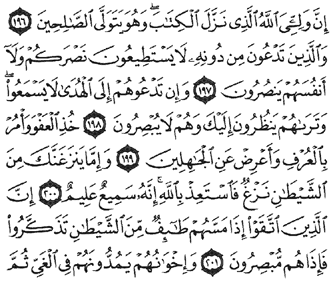 إِنَّ وَلِـِّۧيَ ٱللَّهُ ٱلَّذِي نَزَّلَ ٱلْكِتَٰبَۖ وَهُوَ يَتَوَلَّى ٱلصَّٰلِحِينَ ١٩٦
وَٱلَّذِينَ تَدْعُونَ مِن دُونِهِۦ لَا يَسْتَطِيعُونَ نَصْرَكُمْ وَلَآ
أَنفُسَهُمْ يَنصُرُونَ ١٩٧ وَإِن تَدْعُوهُمْ إِلَى ٱلْهُدَىٰ لَا يَسْمَعُوا۟ۖ
وَتَرَىٰهُمْ يَنظُرُونَ إِلَيْكَ وَهُمْ لَا يُبْصِرُونَ ١٩٨ خُذِ ٱلْعَفْوَ وَأْمُرْ
بِٱلْعُرْفِ وَأَعْرِضْ عَنِ ٱلْجَٰهِلِينَ ١٩٩ وَإِمَّا يَنزَغَنَّكَ مِنَ
ٱلشَّيْطَٰنِ نَزْغٌ فَٱسْتَعِذْ بِٱللَّهِۚ إِنَّهُۥ سَمِيعٌ عَلِيمٌ ٢٠٠ إِنَّ
ٱلَّذِينَ ٱتَّقَوْا۟ إِذَا مَسَّهُمْ طَٰٓئِفٌ مِّنَ ٱلشَّيْطَٰنِ تَذَكَّرُوا۟
فَإِذَا هُم مُّبْصِرُونَ ٢٠١ وَإِخْوَٰنُهُمْ يَمُدُّونَهُمْ فِي ٱلْغَيِّ ثُمَّ